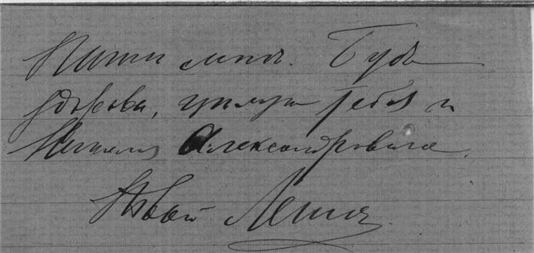 Пиши мнѣ. Будь
здорова, цѣлую тебя и
Михаила Александровича.
Твой Леша